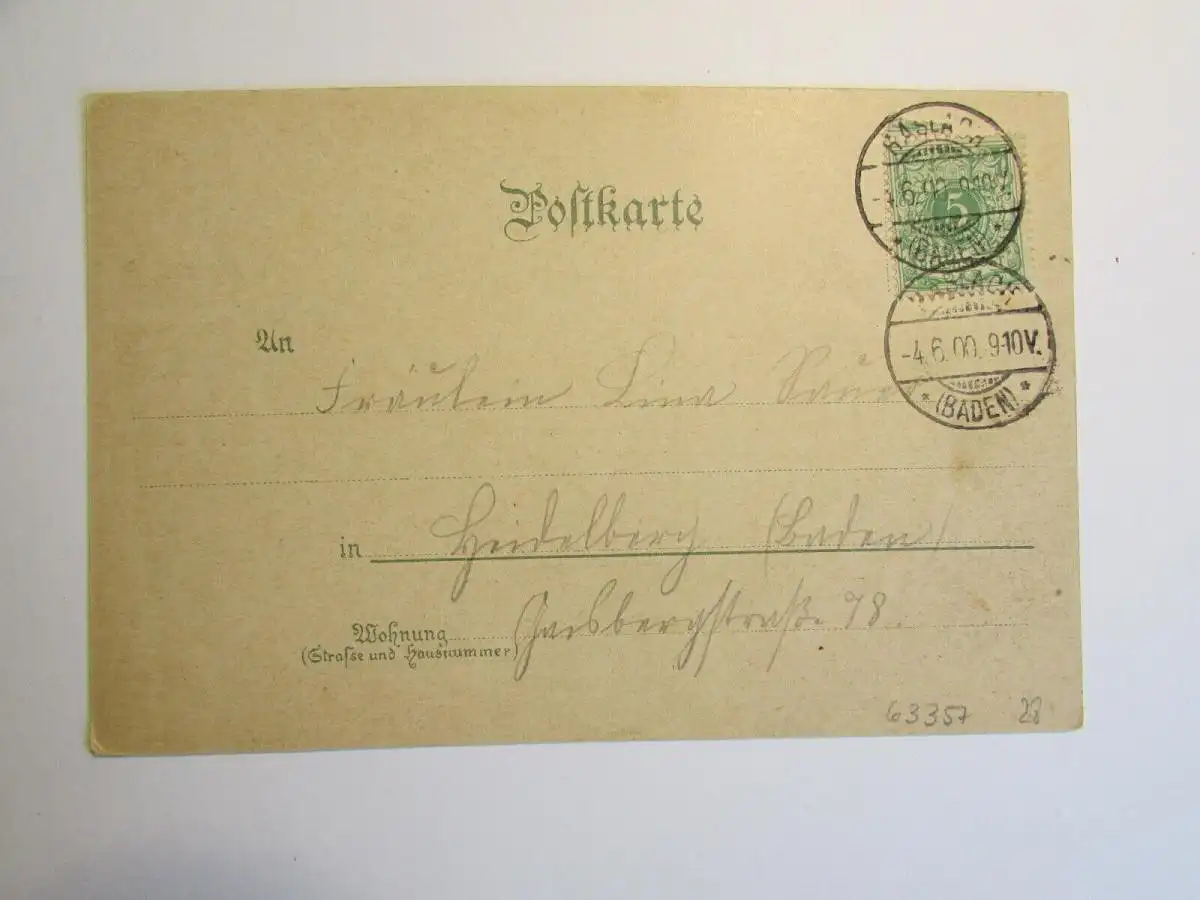 Postkarte
HASLACH
-4.6.00. 9-10V.
* (BADEN) *
5
HASLACH
-4.6.00. 9-10V.
* (BADEN) *
An Fräulein Lina
in Heidelberg (Baden)
Wohnung Gaisbergstraße 78.
(Strasse und Hausnummer)
63357 28